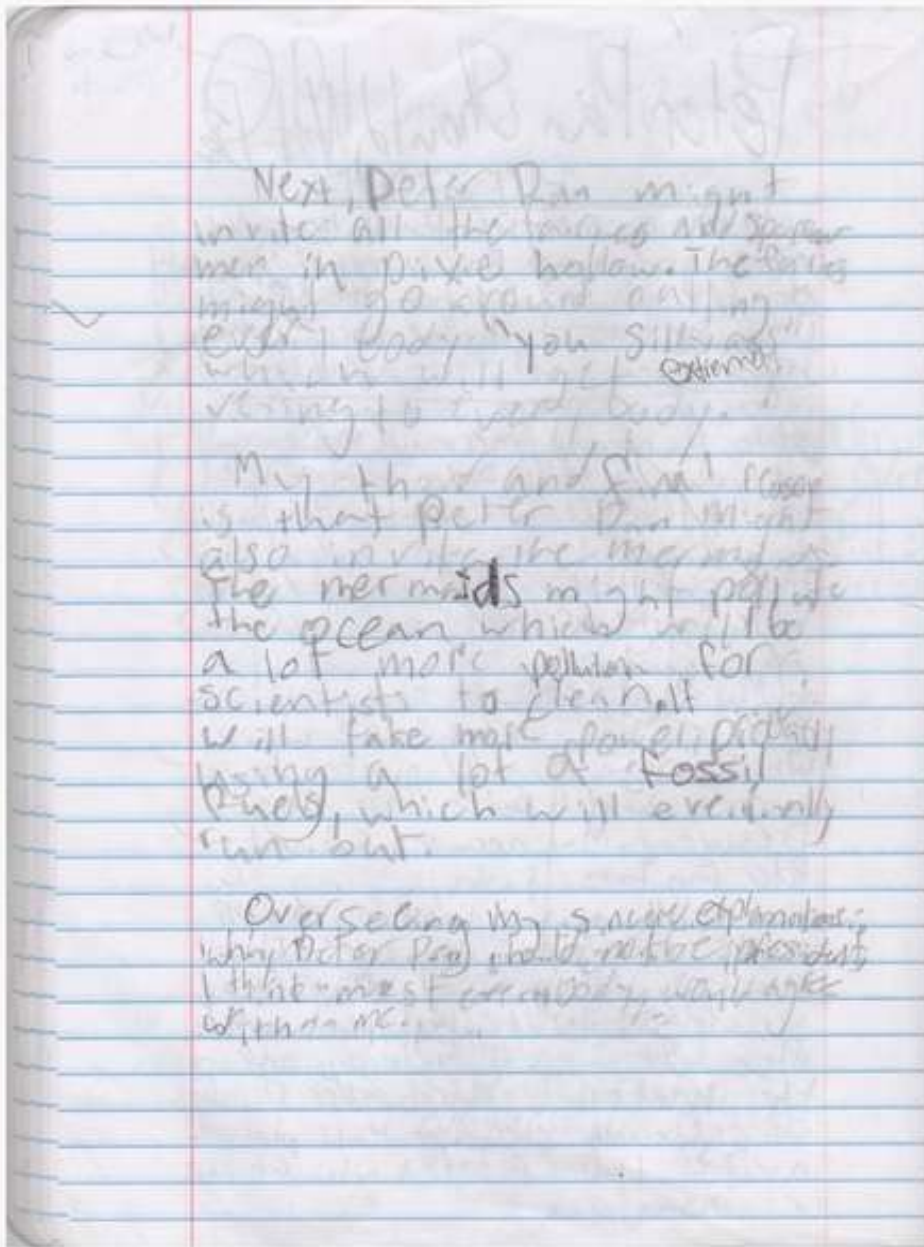 Next, Peter Pan might
invite all the fairies and sparrow
men in pixie hollow. The fairies
might go around calling
every body "you silly
which will get extremely
to every body.
My third and final reason
is that Peter Pan might
also invite the mermaids
The mermaids might pollute
the ocean which will be
a lot more pollution for
scientists to clean. It
will take more power, probably
using a lot of fossil
fuels, which will eventually
run out.
Overseeing my explanations
why Peter Pan should not be president,
I think most everybody would agree
with me.